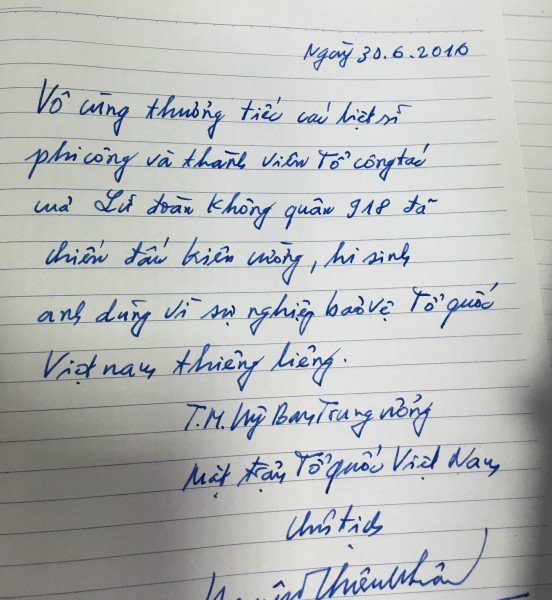 Ngày 30.6.2016
Vô cùng thương tiếc các liệt sĩ
phi công và thành viên Tổ công tác
của Lữ đoàn Không quân 918 đã
chiến đấu kiên cường, hi sinh
anh dũng vì sự nghiệp bảo vệ Tổ quốc
Việt nam thiêng liêng.
T.M. Uỷ Ban Trung ương
Mặt trận Tổ quốc Việt Nam
Chủ tịch
Thiện Nhân